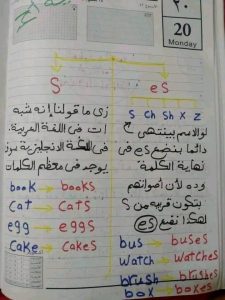 ٢٠
20
Monday
S
es
S ch sh x z
لو الاسم بينتهى ب
دائما بنضع es فى
نهاية الكلمة.
وده لأن أصواتهم
بتكون قريبه من S
لهذا نضع (es)
bus → buses
watch → watches
brush → brushes
box → boxes
زى ما قولنا إنه شبه
ات فى اللغة العربية.
فى اللغة الانجليزية
يوجد فى معظم الكلمات
book → books
cat → cats
egg → eggs
cake → cakes